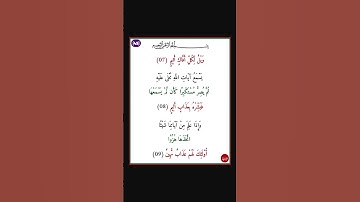 وَيْلٌ لِكُلِّ أَفَّاكٍ أَثِيمٍ (07)
يَسْمَعُ آيَاتِ اللَّهِ تُتْلَى عَلَيْهِ
ثُمَّ يُصِرُّ مُسْتَكْبِرًا كَأَنْ لَمْ يَسْمَعْهَا
فَبَشِّرْهُ بِعَذَابٍ أَلِيمٍ (08)
وَإِذَا عَلِمَ مِنْ آيَاتِنَا شَيْئًا
اتَّخَذَهَا هُزُوًا
أُولَئِكَ لَهُمْ عَذَابٌ مُهِينٌ (09)